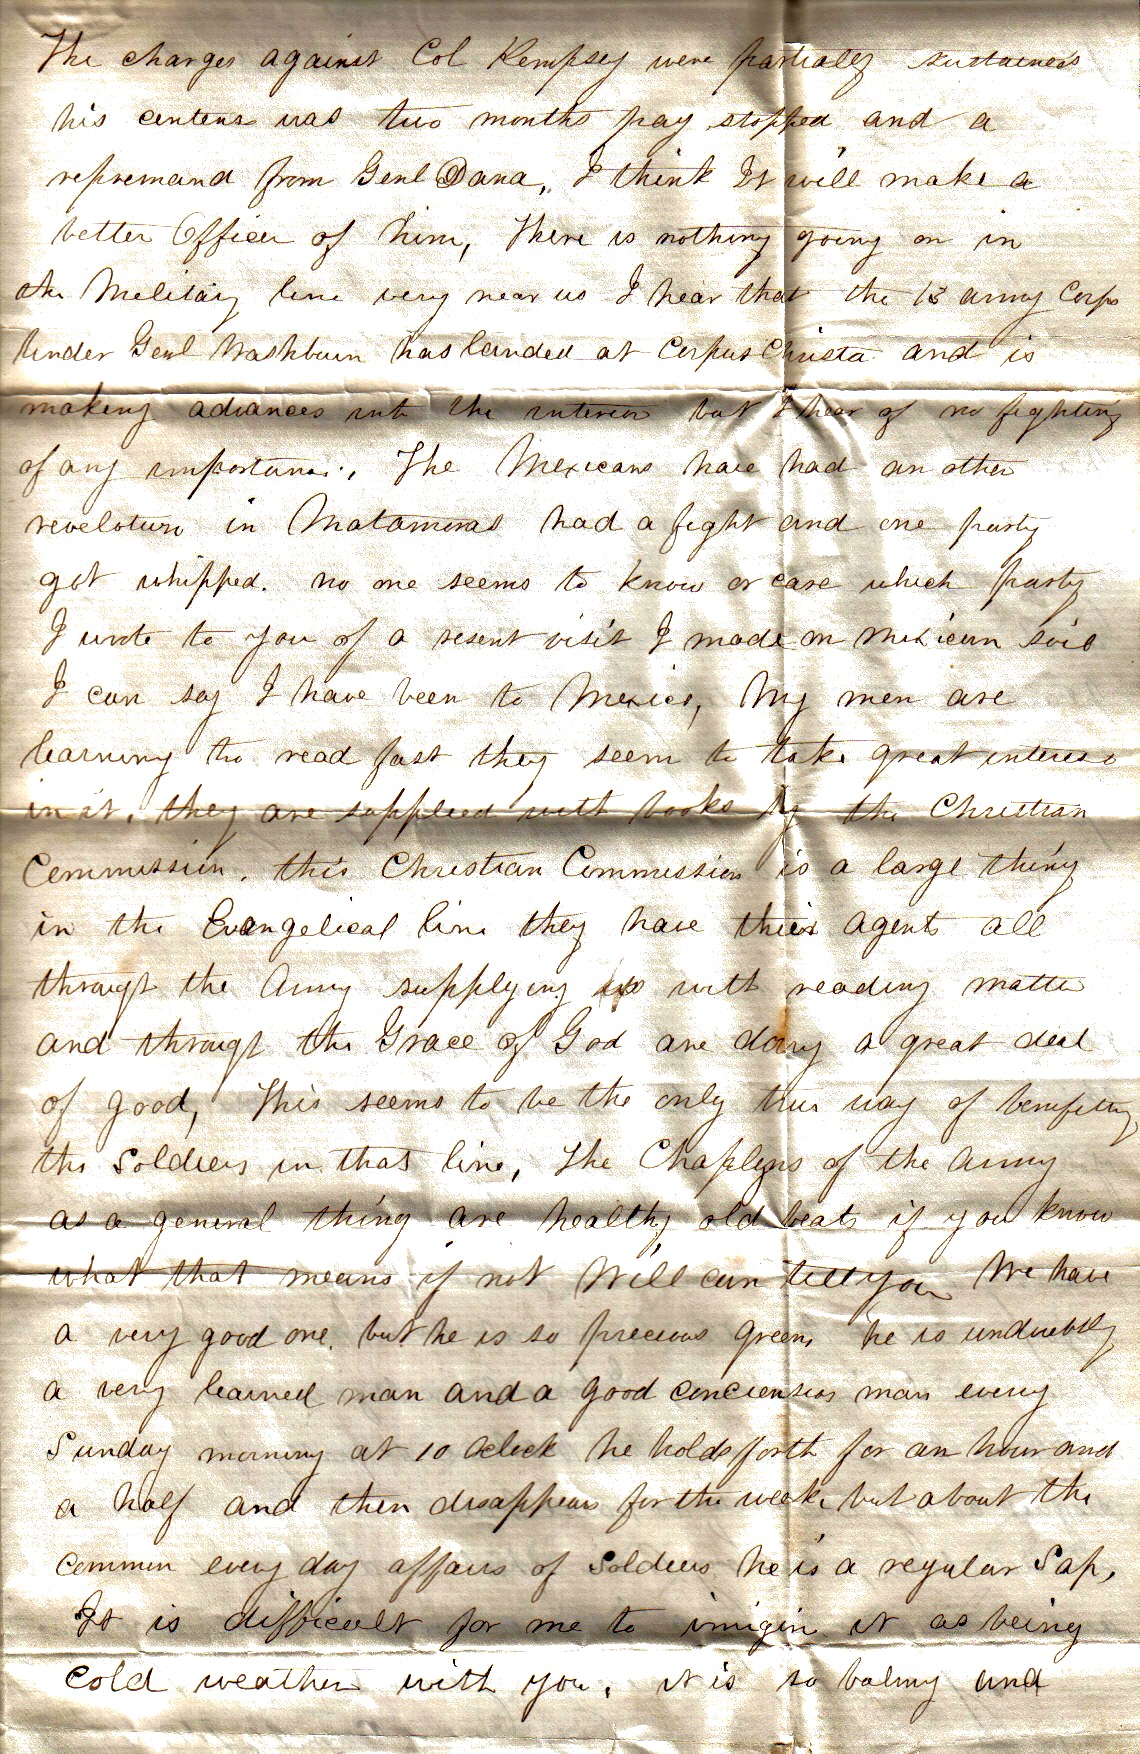 The charges against Col Kempsey were partially sustained
his centens was two months pay stopped and a
repremand from Genl Dana, I think It will make a
better Officer of him, There is nothing going on in
the Melitary line very near us I hear that the 13 army Corps
Under Genl Washburn has landed at Corpus Christa and is
making advances into the interior but I hear of no fighting
of any importance, The Mexicans have had an other
reveloturn in Matamoras had a fight and one party
got whipped. no one seems to know or care which party
I wrote to you of a resent visit I made on Mexican soil
I can say I have been to Mexico, My men are
learning to read fast they seem to take great interest
in it, they are supplied with books by the Christian
Commission. this Christian Commission is a large thing
in the Evangelical line they have their agents all
through the Army supplying us with reading matter
and through the Grace of God are doing a great deal
of good, This seems to be the only true way of benefitting
the Soldiers in that line, The Chaplyns of the Army
as a general thing are healthy old beats if you know
what that means if not Will can tell you We have
a very good one. but he is so precious green, he is undoubtly
a very learned man and a good conciensios man every
Sunday morning at 10 Oclock he holds forth for an hour and
a half and then disappears for the week, but about the
common every day affairs of Soldiers he is a regular Sap,
It is difficult for me to imigin it as being
cold weather with you, it is so balmy and